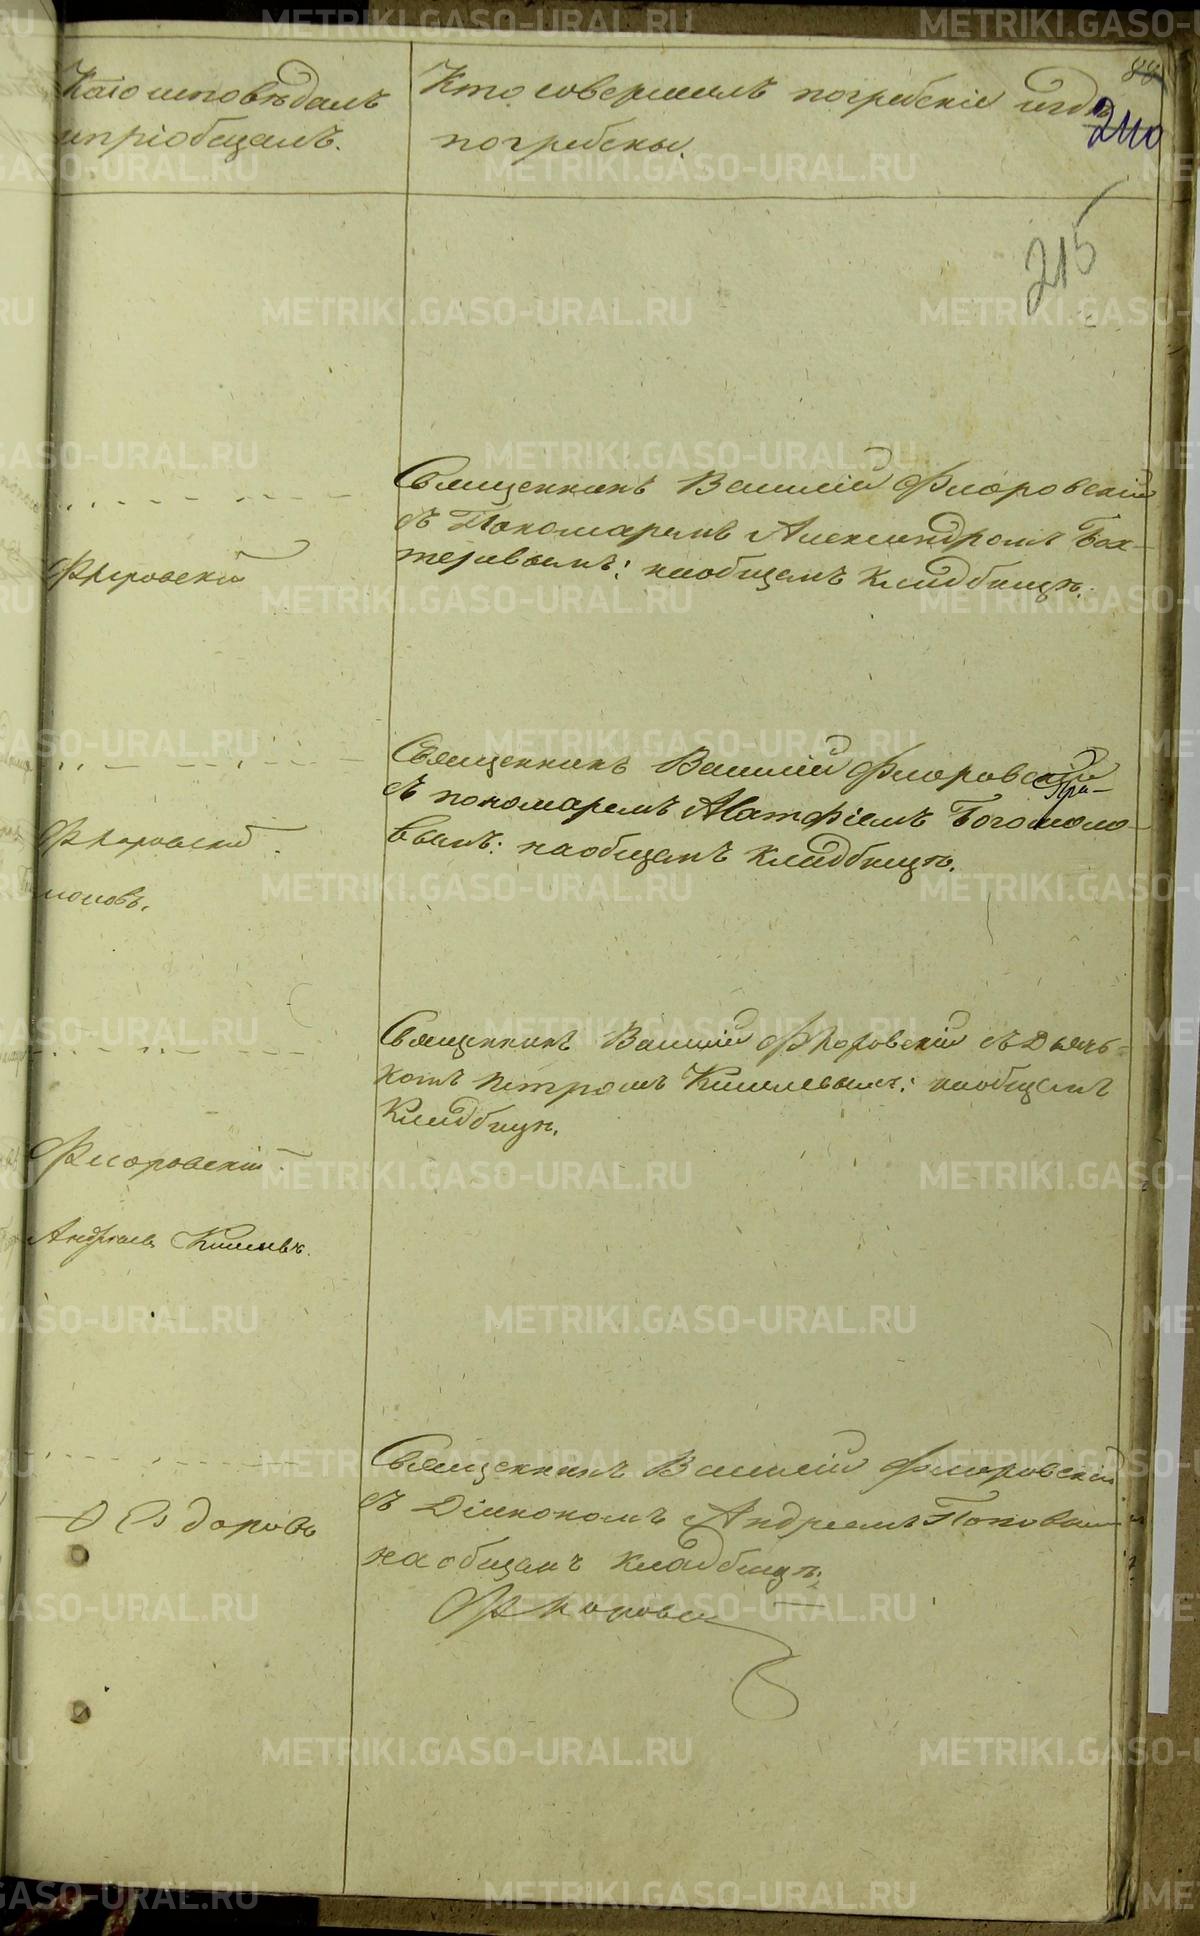 Кто исповѣдалъ
и пріобщалъ.
Кто совершалъ погребеніе и гдѣ
погребены.
88
210
215
Священникъ Василій Флоровскій
съ Пономаремъ Александромъ Бах-
теревымъ: на общемъ кладбищѣ.
Флоровскій
Священникъ Василій Флоровскій
съ пономаремъ Матфіемъ Богомоло-
вымъ: на общемъ кладбищѣ.
Флоровскій
Священникъ Василій Флоровскій съ Дьяч-
комъ Петромъ Киселевымъ: на общемъ
Кладбищѣ.
Флоровскій
Андрей Киселевъ.
Священникъ Василій Флоровскій
съ Діякономъ Андреемъ Поповымъ
на общемъ кладбищѣ:
METRIKI.GASO-URAL.RU